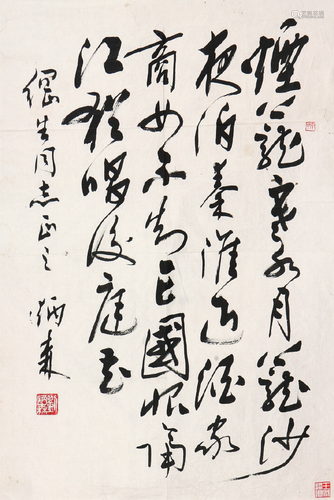 煙籠寒水月籠沙
夜泊秦淮近酒家
商女不知亡國恨隔
江猶唱後庭花
綱生同志正之 炳森